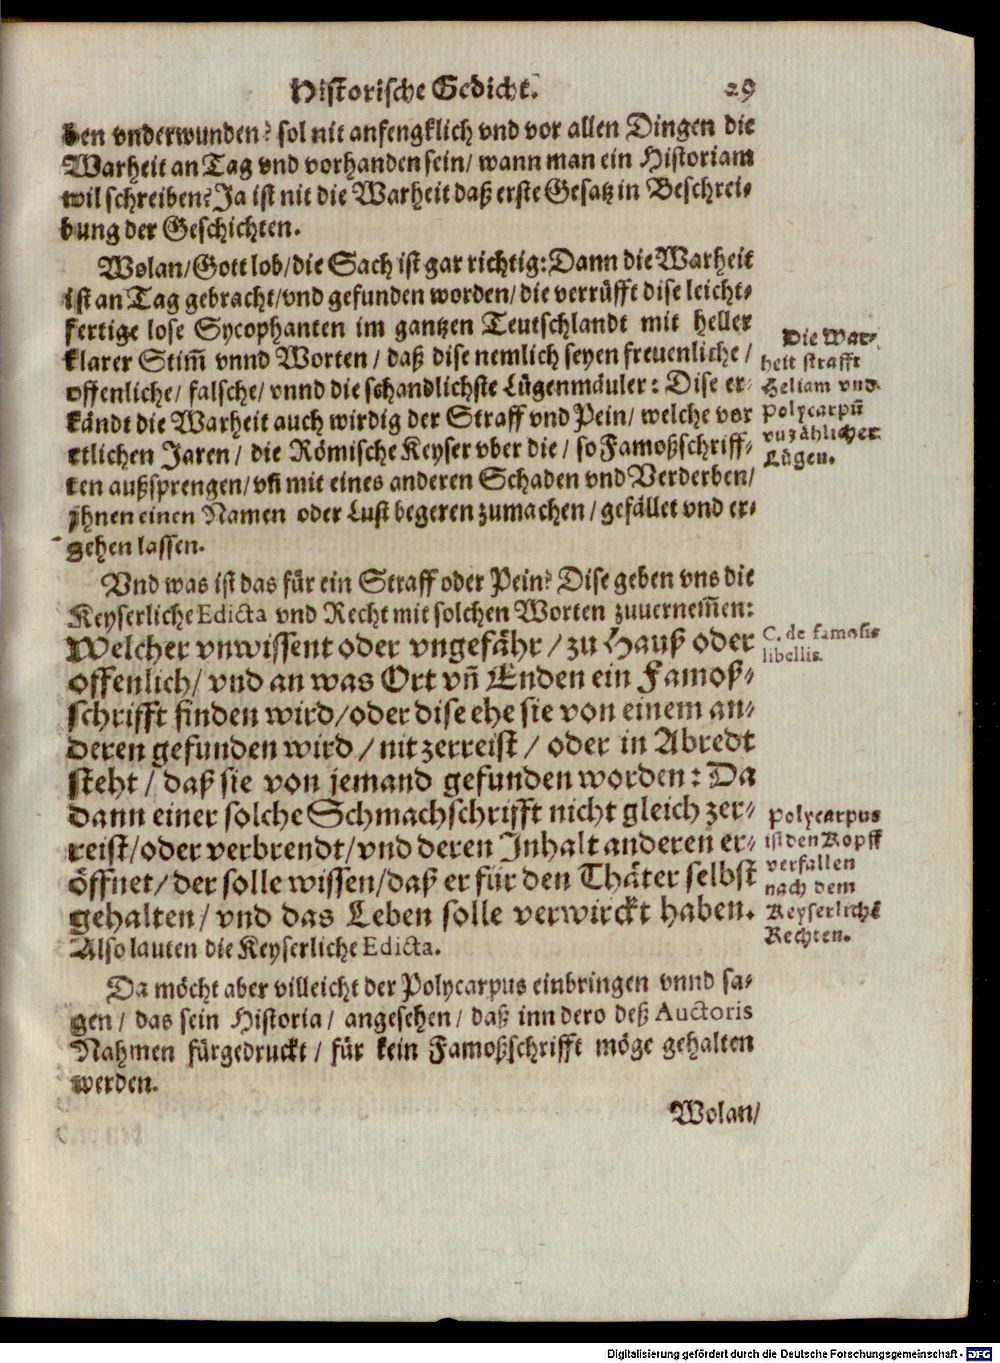 Historische Gedicht. 29
ben vnderwunden? sol nit anfengklich vnd vor allen Dingen die
Warheit an Tag vnd vorhanden sein/ wann man ein Historiam
wil schreiben? Ja ist nit die Warheit daß erste Gesatz in Beschrei-
bung der Geschichten.
Wolan/ Gott lob/ die Sach ist gar richtig: Dann die Warheit
ist an Tag gebracht/ vnd gefunden worden/ die verrüfft dise leicht-
fertige lose Sycophanten im gantzen Teutschlandt mit heller
klarer Stim̃ vnnd Worten / daß dise nemlich seyen freuenliche /
offenliche/ falsche/ vnnd die schandlichste Lügenmäuler: Dise er-
kändt die Warheit auch wirdig der Straff vnd Pein/ welche vor
etlichen Jaren/ die Römische Keyser vber die / so Famoßschriff-
ten außsprengen/ vñ mit eines anderen Schaden vnd Verderben/
jhnen einen Namen oder Lust begeren zumachen / gefället vnd er-
gehen lassen.
Die War-
heit strafft
Heliam vnd
Polycarpũ
vnzählicher
Lügen.
Vnd was ist das für ein Straff oder Pein? Dise geben vns die
Keyserliche Edicta vnd Recht mit solchen Worten zuuernem̃en:
Welcher vnwissent oder vngefähr / zu Hauß oder
offenlich/ vnd an was Ort vñ Enden ein Famoß-
schrifft finden wird/ oder dise ehe sie von einem an-
deren gefunden wird / nit zerreist / oder in Abredt
steht / daß sie von jemand gefunden worden: Da
dann einer solche Schmachschrifft nicht gleich zer-
reist/ oder verbrendt/ vnd deren Inhalt anderen er-
öffnet/ der solle wissen/ daß er für den Thäter selbst
gehalten/ vnd das Leben solle verwirckt haben.
Also lauten die Keyserliche Edicta.
C. de famosis
libellis.
Polycarpus
ist den Kopff
verfallen
nach dem
Keyserliche
Rechten.
Da möcht aber villeicht der Polycarpus einbringen vnnd sa-
gen / das sein Historia / angesehen / daß inn dero deß Auctoris
Nahmen fürgedruckt / für kein Famoßschrifft möge gehalten
werden.
Wolan/
Digitalisierung gefördert durch die Deutsche Forschungsgemeinschaft - DFG